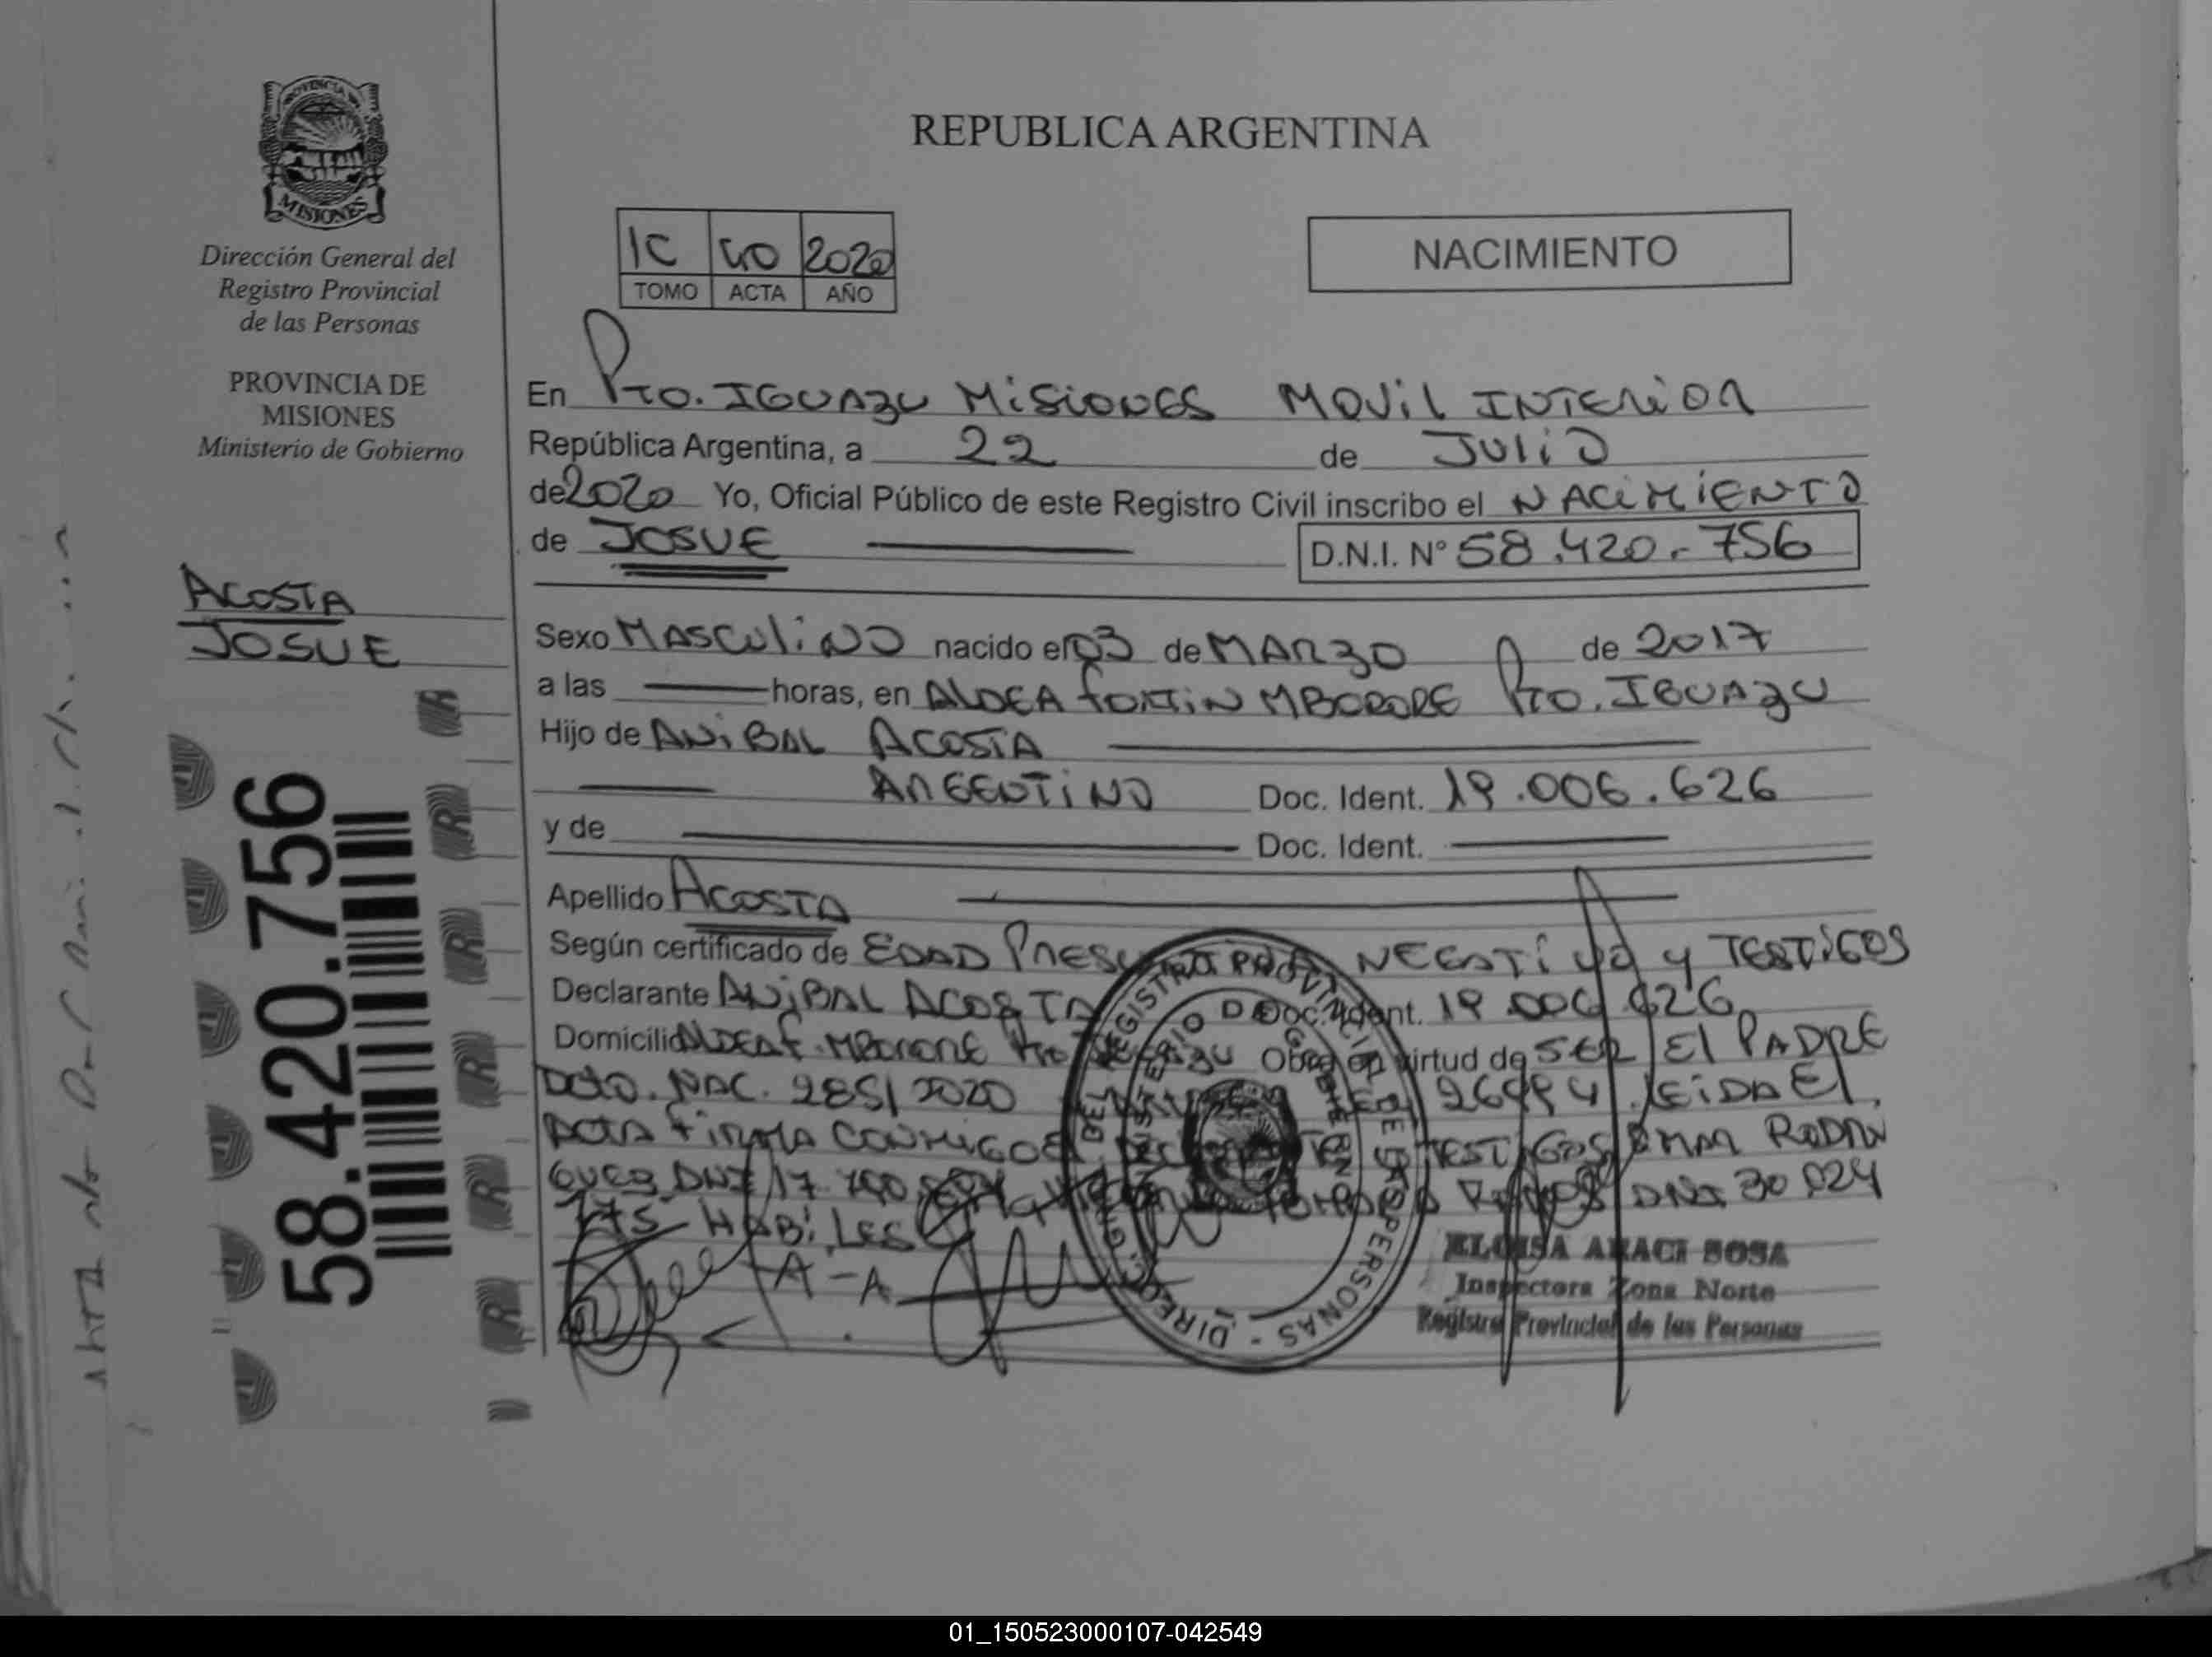 PROVINCIA DE
MISIONES
Dirección General del
Registro Provincial
de las Personas
PROVINCIA DE
MISIONES
Ministerio de Gobierno
ACOSTA
JOSUE
58.420.756
REPUBLICA ARGENTINA
1C 40 2020
TOMO ACTA AÑO
NACIMIENTO
En Pto. IGUAZU MISIONES MOVIL INTERIOR
República Argentina, a 22 de JULIO
de 2020 Yo, Oficial Público de este Registro Civil inscribo el NACIMIENTO
de JOSUE D.N.I. N° 58.420.756
Sexo MASCULINO nacido el 03 de MARZO de 2017
a las horas, en ALDEA FORTIN MBORORE Pto. IGUAZU
Hijo de ANIBAL ACOSTA
ARGENTINO Doc. Ident. 19.006.626
y de Doc. Ident.
Apellido ACOSTA
Según certificado de EDAD NEGATIVO y TESTIGOS
Declarante ANIBAL ACOSTA Doc. Ident. 19 006 626
Domicilio ALDEA F. MBORORE Pto IGUAZU Obra en virtud de SER EL PADRE
DCTO. NAC. 285/2020 LEIDA EL
ACTA FIRMA CONMIGO EL TESTIGOS OMAR RODRI
GUEZ DNI 17. DNI. 30 024
775 HABILES
A-A
DIREC. GRAL. DEL REGISTRO PROVINCIAL DE LAS PERSONAS
MINISTERIO DE GOBIERNO
ELOISA ARACI SOSA
Inspectora Zona Norte
Registro Provincial de las Personas
01_150523000107-042549